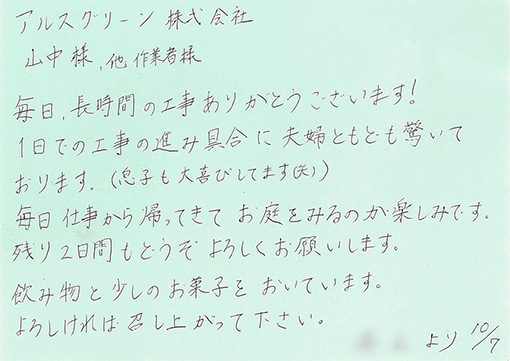 アルスグリーン株式会社
山中様，他作業者様
毎日，長時間の工事ありがとうございます！
1日での工事の進み具合に夫婦ともども驚いて
おります。(息子も大喜びしてます(笑))
毎日仕事から帰ってきてお庭をみるのが楽しみです。
残り2日間もどうぞよろしくお願いします。
飲み物と少しのお菓子をおいています。
よろしければ召し上がって下さい。
より 10/7